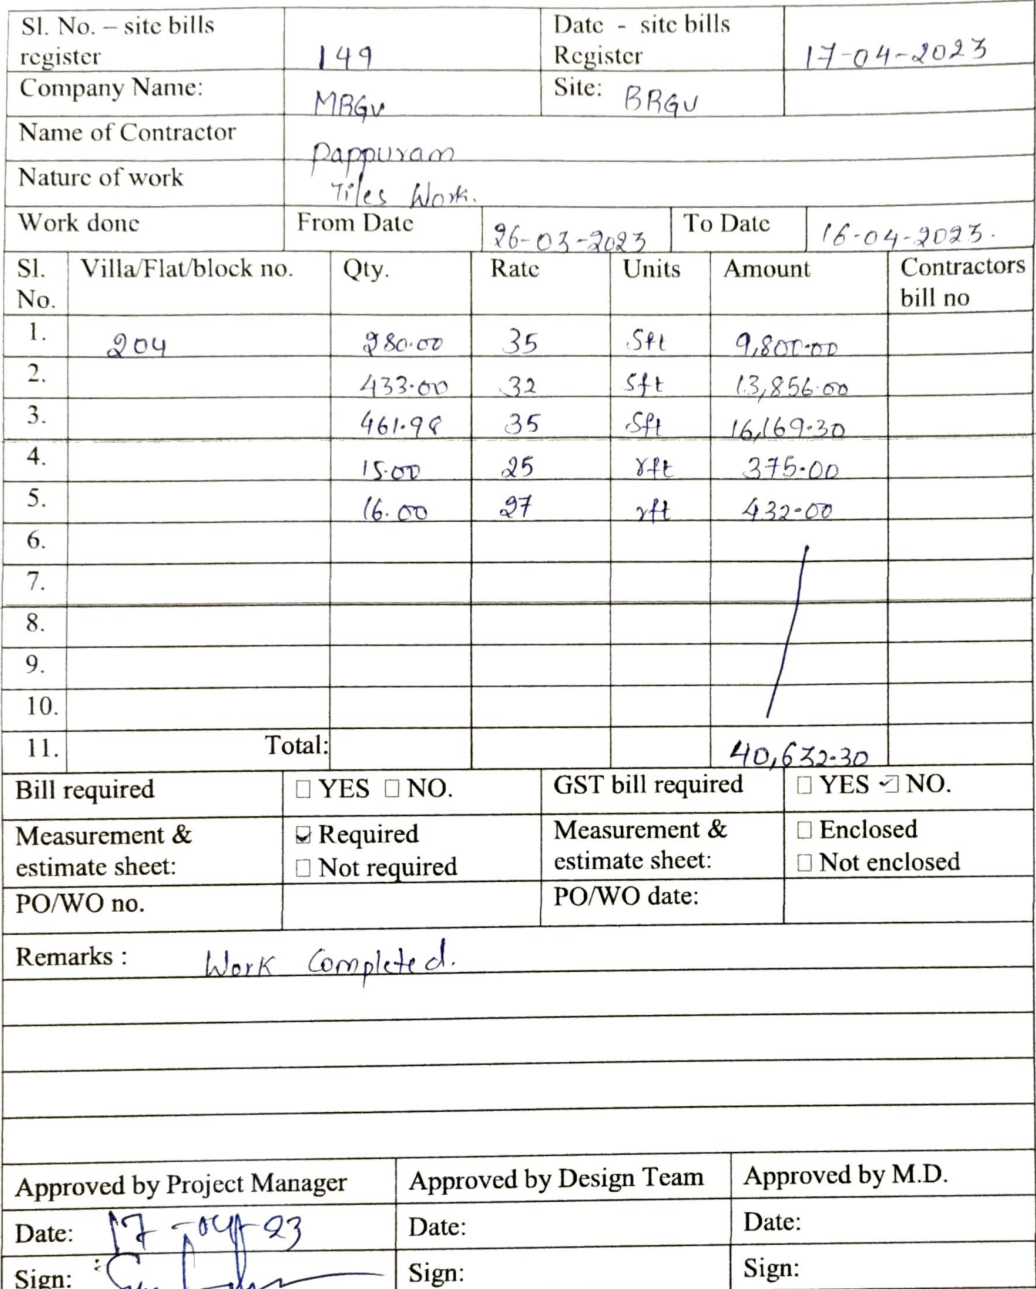 Sl. No. – site bills register 149 Date - site bills Register 17-04-2023
Company Name: MRGV Site: BRGV
Name of Contractor Pappuram
Nature of work Tiles Work.
Work done From Date 26-03-2023 To Date 16-04-2023.
Sl. No. Villa/Flat/block no. Qty. Rate Units Amount Contractors bill no
1. 204 280.00 35 Sft 9,800.00
2. 433.00 32 Sft 13,856.00
3. 461.98 35 Sft 16,169.30
4. 15.00 25 rft 375.00
5. 16.00 27 rft 432.00
6.
7.
8.
9.
10.
11. Total: 40,632.30
Bill required ☐ YES ☐ NO. GST bill required ☐ YES ☑ NO.
Measurement & estimate sheet: ☑ Required ☐ Not required Measurement & estimate sheet: ☐ Enclosed ☐ Not enclosed
PO/WO no. PO/WO date:
Remarks : Work Completed.
Approved by Project Manager Approved by Design Team Approved by M.D.
Date: 17-04-23 Date: Date:
Sign: Sign: Sign: